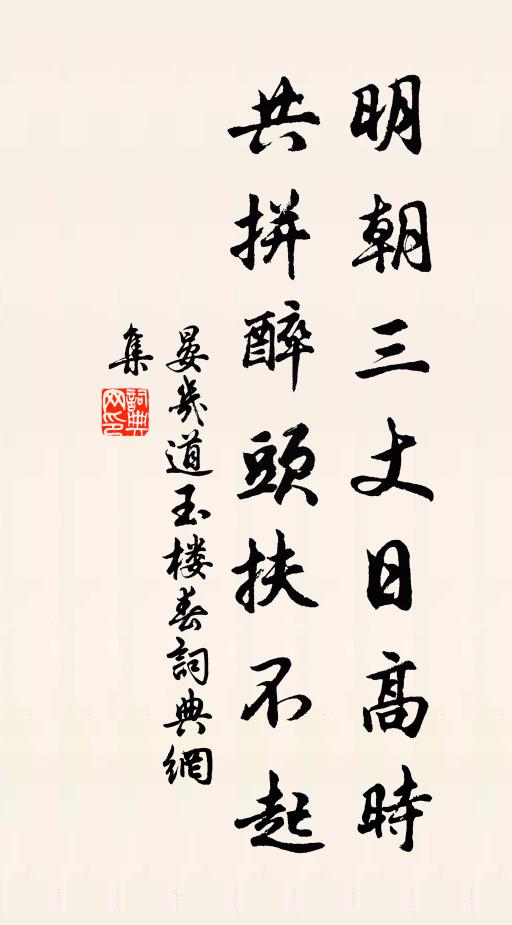 明朝三丈日高時
共拼醉頭扶不起
晏幾道玉楼春詞典網
集
詞典网印